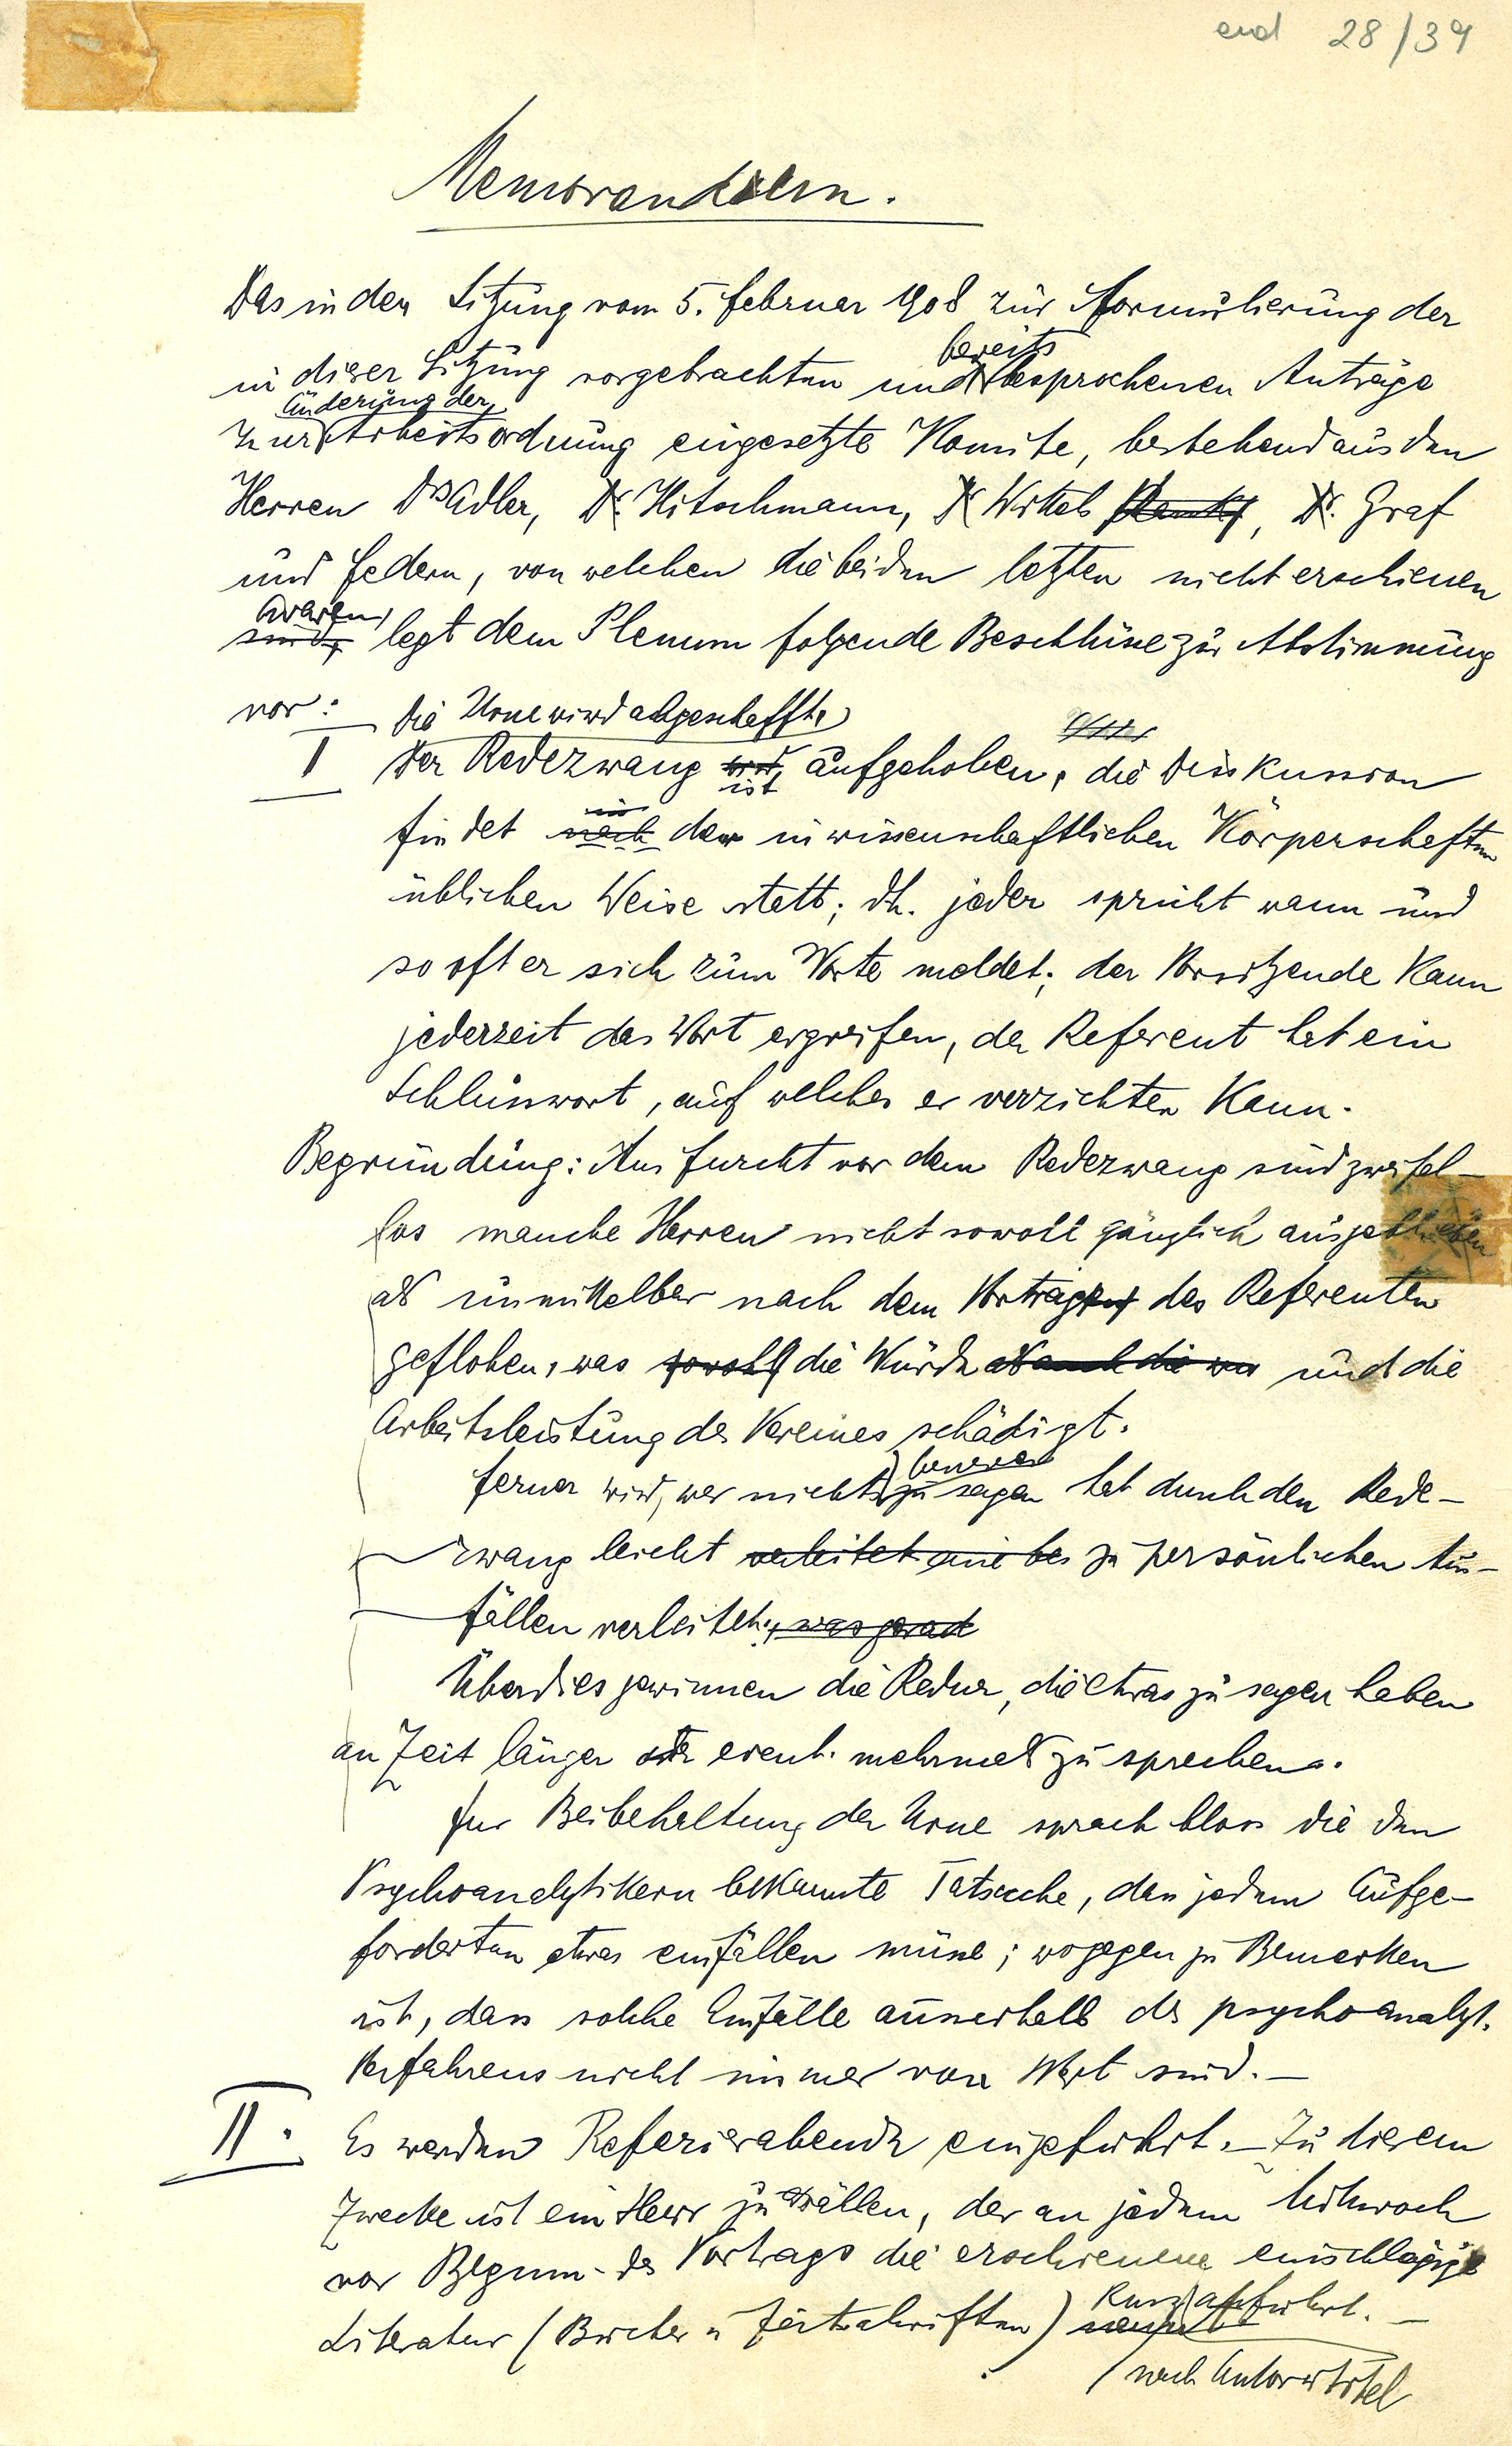 end 28/39
Memorandum.
Das in der Sitzung vom 5. Februar 1908 zur Formulierung der
bereits
in dieser Sitzung vorgebrachten und besprochenen Anträge
Änderung der
zur Arbeitsordnung eingesetzte Komite, bestehend aus den
Herren Drs Adler, Dr. Hitschmann, Dr Wittels, Dr. Graf
und Federn, von welchen die beiden letzten nicht erschienen
waren,
sind, legt dem Plenum folgende Beschlüsse zur Abstimmung
vor: Die Urne wird abgeschafft.
I Der Redezwang wird aufgehoben, die Disskussion
ist
in
findet nach der in wissenschaftlichen Körperschaften
üblichen Weise statt; dh. jeder spricht wann und
so oft er sich zum Worte meldet; der Vorsitzende kann
jederzeit das Wort ergreifen, der Referent hat ein
Schlusswort, auf welches er verzichten kann.
Begründung: Aus Furcht vor dem Redezwang sind zweifel-
los manche Herren nicht sowohl gänzlich ausgeblieben
als unmittelbar nach dem Vortrag des Referenten
geflohen, was sowohl die Würde als auch die und die
Arbeitsleistung des Vereines schädigt.
besseres
Ferner wird, wer nichts zu sagen hat durch den Rede-
zwang leicht verleitet zu persönlichen Aus-
fällen verleitet, was gerade
Überdies gewinnen die Redner, die etwas zu sagen haben
an Zeit länger oder event. mehrmals zu sprechen.
Für Beibehaltung der Urne sprach bloss die den
Psychoanalytikern bekannte Tatsache, dass jedem Aufge-
forderten etwas einfallen müsse; wogegen zu Bemerken
ist, dass solche Einfälle ausserhalb des psychoanalyt.
Verfahrens nicht immer von Wert sind. –
II. Es werden Referierabende eingeführt. – Zu diesem
Zwecke ist ein Herr zu wählen, der an jedem Mittwoch
vor Beginn des Vortrags die erschienene einschlägige
kurz anführt. –
Literatur (Bücher u Zeitschriften)
nach Autor u Titel